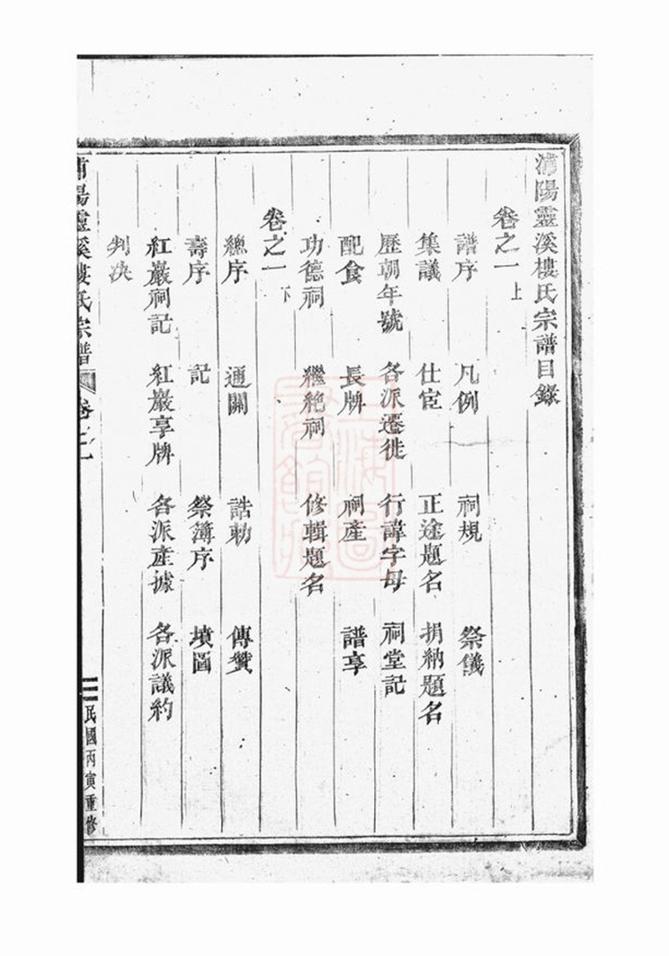 浦陽靈溪樓氏宗譜目錄
卷之一上
譜序 凡例 祠規 祭儀
集議 仕宦 正途題名 捐納題名
歷朝年號 各派遷徙 行諱字母 祠堂記
配食 長牌 祠產 譜享
功德祠 繼絶祠 修輯題名
卷之一下
總序 通關 誥勅 傳贊
壽序 記 祭簿序 墳圖
紅巖祠記 紅巖享牌 各派產據 各派議約
判决
浦陽靈溪樓氏宗譜 卷之一
民國丙寅重修